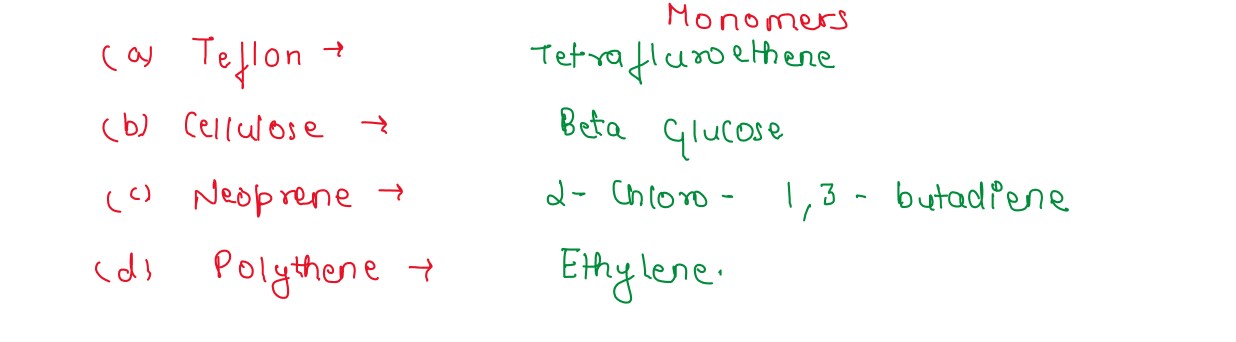 Monomers
(a) Teflon → Tetrafluroethene
(b) Cellulose → Beta Glucose
(c) Neoprene → 2- Chloro - 1,3 - butadiene
(d) Polythene → Ethylene.